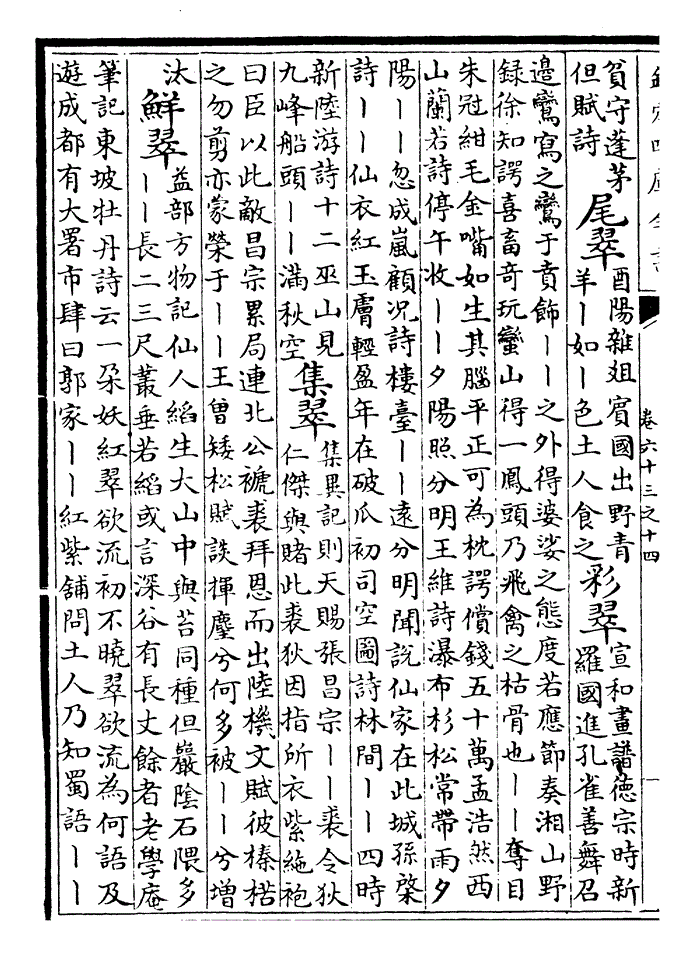 卷六十三之十四
貧守蓬茅
但賦詩
尾翠
酉陽雜俎賓國出野青
羊丨如丨色土人食之
彩翠
宣和畫譜德宗時新
羅國進孔雀善舞召
邊鸞寫之鸞于賁飾丨丨之外得婆娑之態度若應節奏湘山野
録徐知諤喜畜奇玩蠻山得一鳳頭乃飛禽之枯骨也丨丨奪目
朱冠紺毛金嘴如生其腦平正可為枕諤償錢五十萬孟浩然西
山蘭若詩停午收丨丨夕陽照分明王維詩瀑布杉松常帶雨夕
陽丨丨忽成嵐顧况詩樓臺丨丨遠分明聞說仙家在此城孫棨
詩丨丨仙衣紅玉膚輕盈年在破瓜初司空圖詩林間丨丨四時
新陸游詩十二巫山見
九峰船頭丨丨滿秋空
集翠
集異記則天賜張昌宗丨丨裘令狄
仁傑與賭此裘狄因指所衣紫絁袍
曰臣以此敵昌宗累局連北公褫裘拜恩而出陸機文賦彼榛楛
之勿剪亦蒙榮于丨丨王曾矮松賦談揮麈兮何多被丨丨兮增
汰
鮮翠
益部方物記仙人縚生大山中與苔同種但巖陰石隈多
丨丨長二三尺叢垂若縚或言深谷有長丈餘者老學庵
筆記東坡牡丹詩云一朶妖紅翠欲流初不曉翠欲流為何語及
遊成都有大署市肆曰郭家丨丨紅紫鋪問土人乃知蜀語丨丨